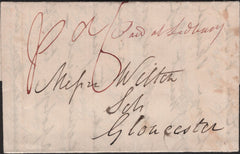 Paid at Ledbury
Messrs Wilton
Sols
Gloucester